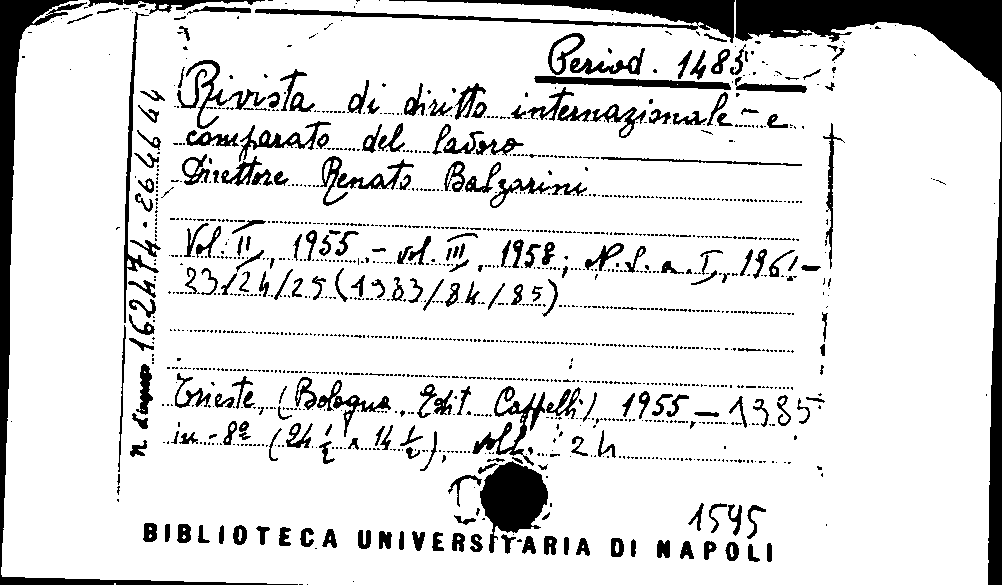 Period. 1485
Rivista di diritto internazionale - e
comparato del lavoro
Direttore Renato Balzarini
Vol. II, 1955. - vol. III, 1958; N.S. a. I, 1961-
23/24/25 (1983/84/85)
Trieste, (Bologna, Edit. Cappelli), 1955, - 1985
in - 8º (24 ½ x 14 ½), voll. 24
1595
BIBLIOTECA UNIVERSITARIA DI NAPOLI
n. d'ingresso 162474 - 264644